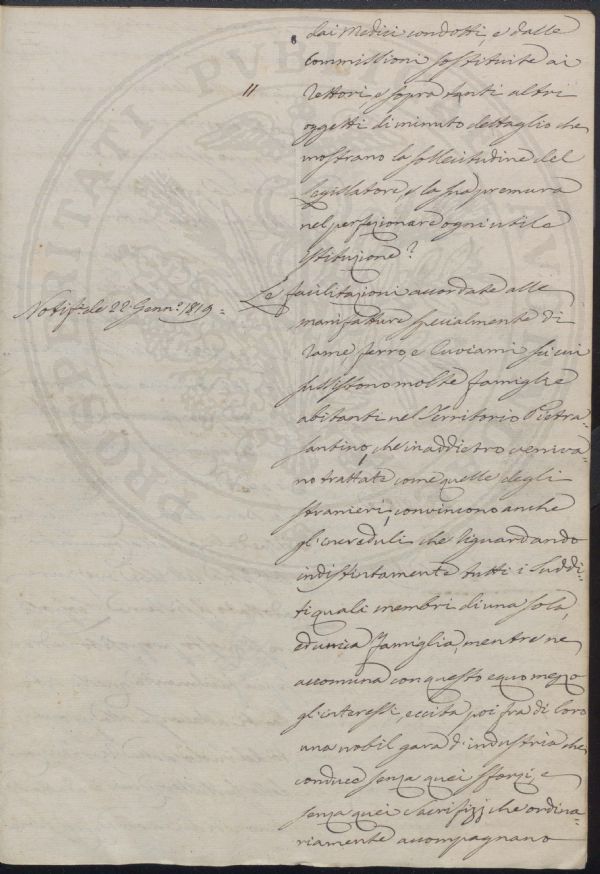 dai Medici condotti, e dalle
Commissioni sostituite ai
Rettori, e sopra tanti altri
oggetti di minuto dettaglio che
mostrano la sollecitudine del
Legislatore, e la sua premura
nel perfezionare ogni utile
istituzione?
Notif.e de 22. Genn.o 1819.=
Le facilitazioni accordate alle
manifatture specialmente di
rame ferro, e Cuoiami su cui
sussistono molte famiglie
abitanti nel Territorio Pietra=
santino, che in addietro veniva=
no trattate come quelle degli
stranieri, convincono anche
gl'increduli che riguardando
indistintamente tutti i Suddi=
ti quali membri di una sola,
ed unica famiglia, mentre ne
accomuna con questo equo mezzo
gl'interessi, eccita poi fra di loro
una nobil gara d'industria che
conduce senza quei sforzi, e
senza quei sacrifizj che ordina=
riamente accompagnano
PROSPERITATI PUBLICAE